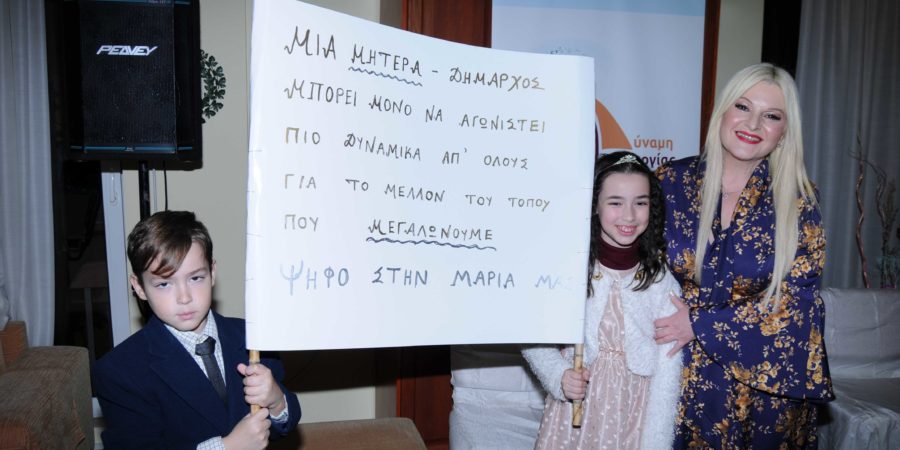 PEAVEY
ΜΙΑ ΜΗΤΕΡΑ - ΔΗΜΑΡΧΟΣ
ΜΠΟΡΕΙ ΜΟΝΟ ΝΑ ΑΓΩΝΙΣΤΕΙ
ΠΙΟ ΔΥΝΑΜΙΚΑ ΑΠ' ΟΛΟΥΣ
ΓΙΑ ΤΟ ΜΕΛΛΟΝ ΤΟΥ ΤΟΠΟΥ
ΠΟΥ ΜΕΓΑΛΩΝΟΥΜΕ
ΨΗΦΟ ΣΤΗΝ ΜΑΡΙΑ ΜΑΣ
ύναμη